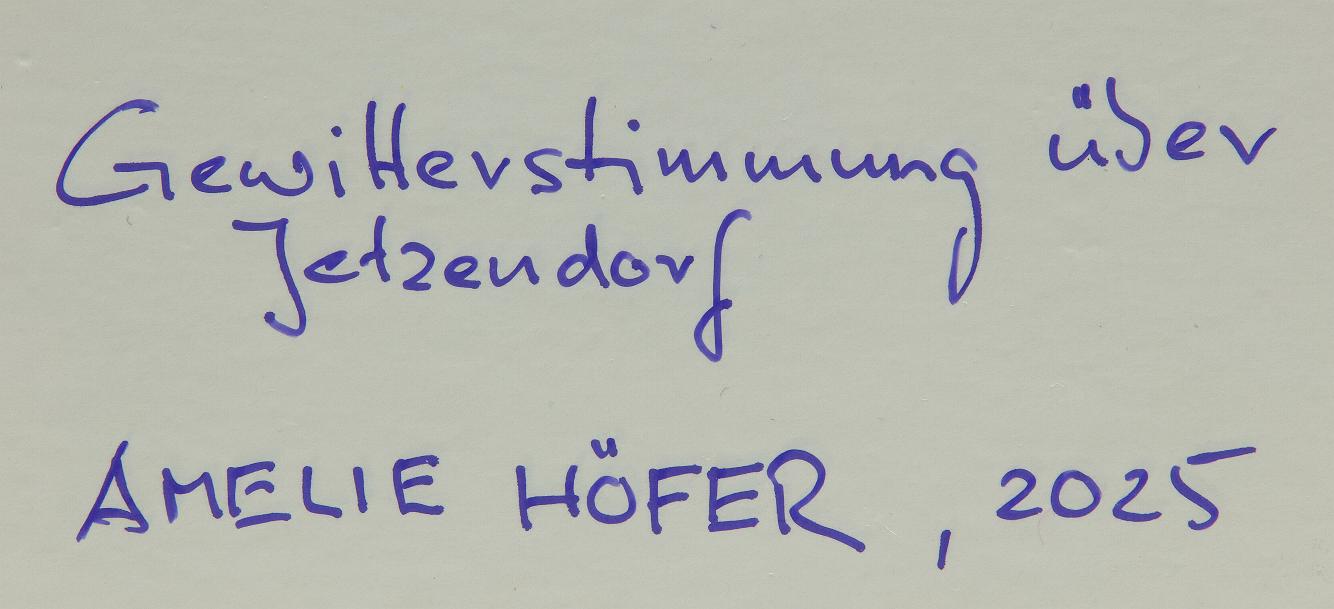 Gewitterstimmung über
Jetzendorf
AMELIE HÖFER, 2025